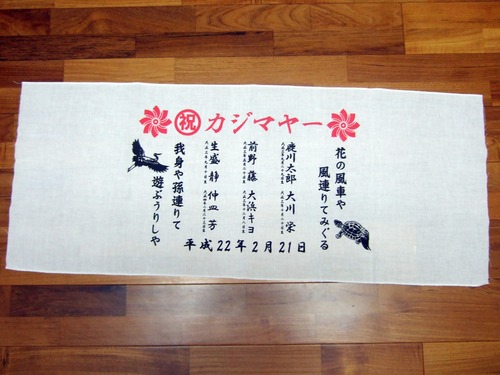 祝 カジマヤー
花の風車や
風連りてみぐる
鹿川太郎 大川 栄
前野 藤 大浜キヨ
生盛 静 仲皿 芳
我身や孫連りて
遊ぶうりしや
平成22年2月21日